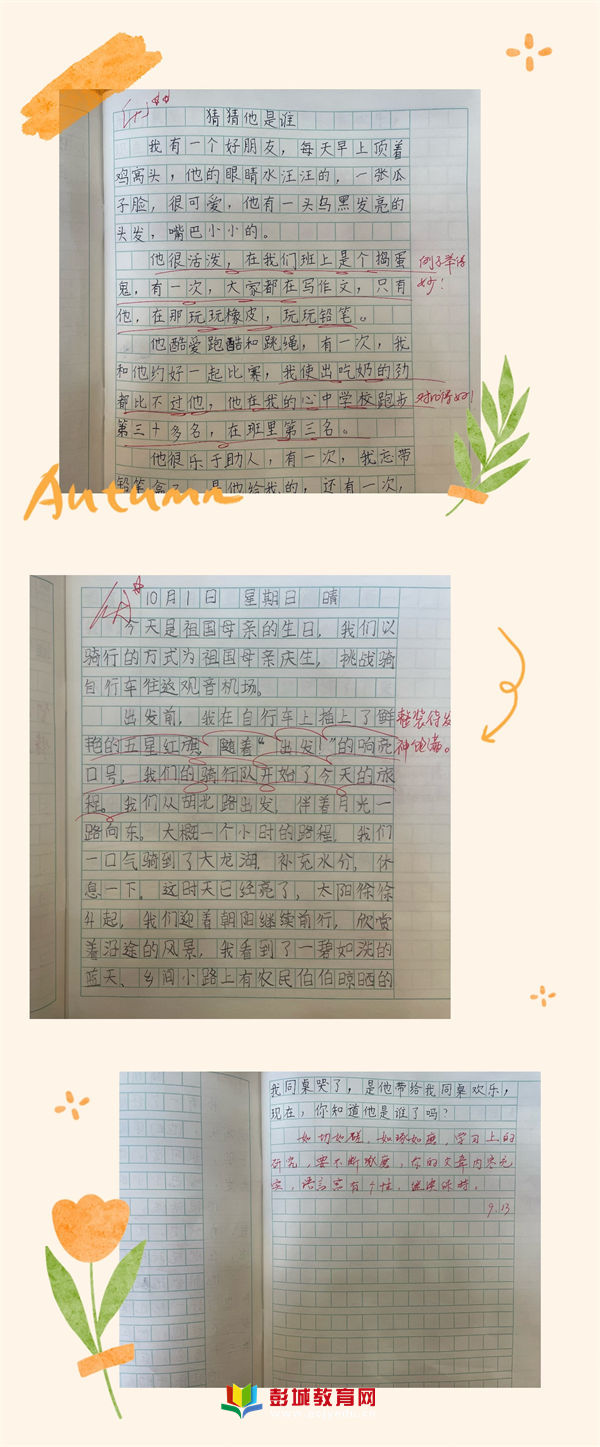 猜猜他是谁
我有一个好朋友，每天早上顶着
鸡窝头，他的眼睛水汪汪的，一张瓜
子脸，很可爱，他有一头乌黑发亮的
头发，嘴巴小小的。
他很活泼，在我们班上是个捣蛋
鬼，有一次，大家都在写作文，只有
他，在那玩玩橡皮，玩玩铅笔。
例子举得
妙！
他酷爱跑酷和跳绳，有一次，我
和他约好一起比赛，我使出吃奶的劲
都比不过他，他在我的心中学校跑步
第三十多名，在班里第三名。
对比得好！
他很乐于助人，有一次，我忘带
铅笔盒了，是他给我的，还有一次，
Autumn
10月1日 星期日 晴
今天是祖国母亲的生日，我们以
骑行的方式为祖国母亲庆生，挑战骑
自行车往返观音机场。
出发前，我在自行车上插上了鲜
艳的五星红旗，随着“出发！”的响亮
口号，我们的骑行队开始了今天的旅
程。我们从湖光路出发，伴着月光一
路向东。大概一个小时的路程，我们
一口气骑到了大龙湖，补充水分，休
息一下。这时天已经亮了，太阳徐徐
升起，我们迎着朝阳继续前行，欣赏
着沿途的风景，我看到了一碧如洗的
蓝天、乡间小路上有农民伯伯晾晒的
整装待发
我同桌哭了，是他带给我同桌欢乐，
现在，你知道他是谁了吗？
如切如磋，如琢如磨，学习上的
研究，要不断琢磨，你的文章内容充
实，语言富有个性，继续保持。
9.13
彭城教育网